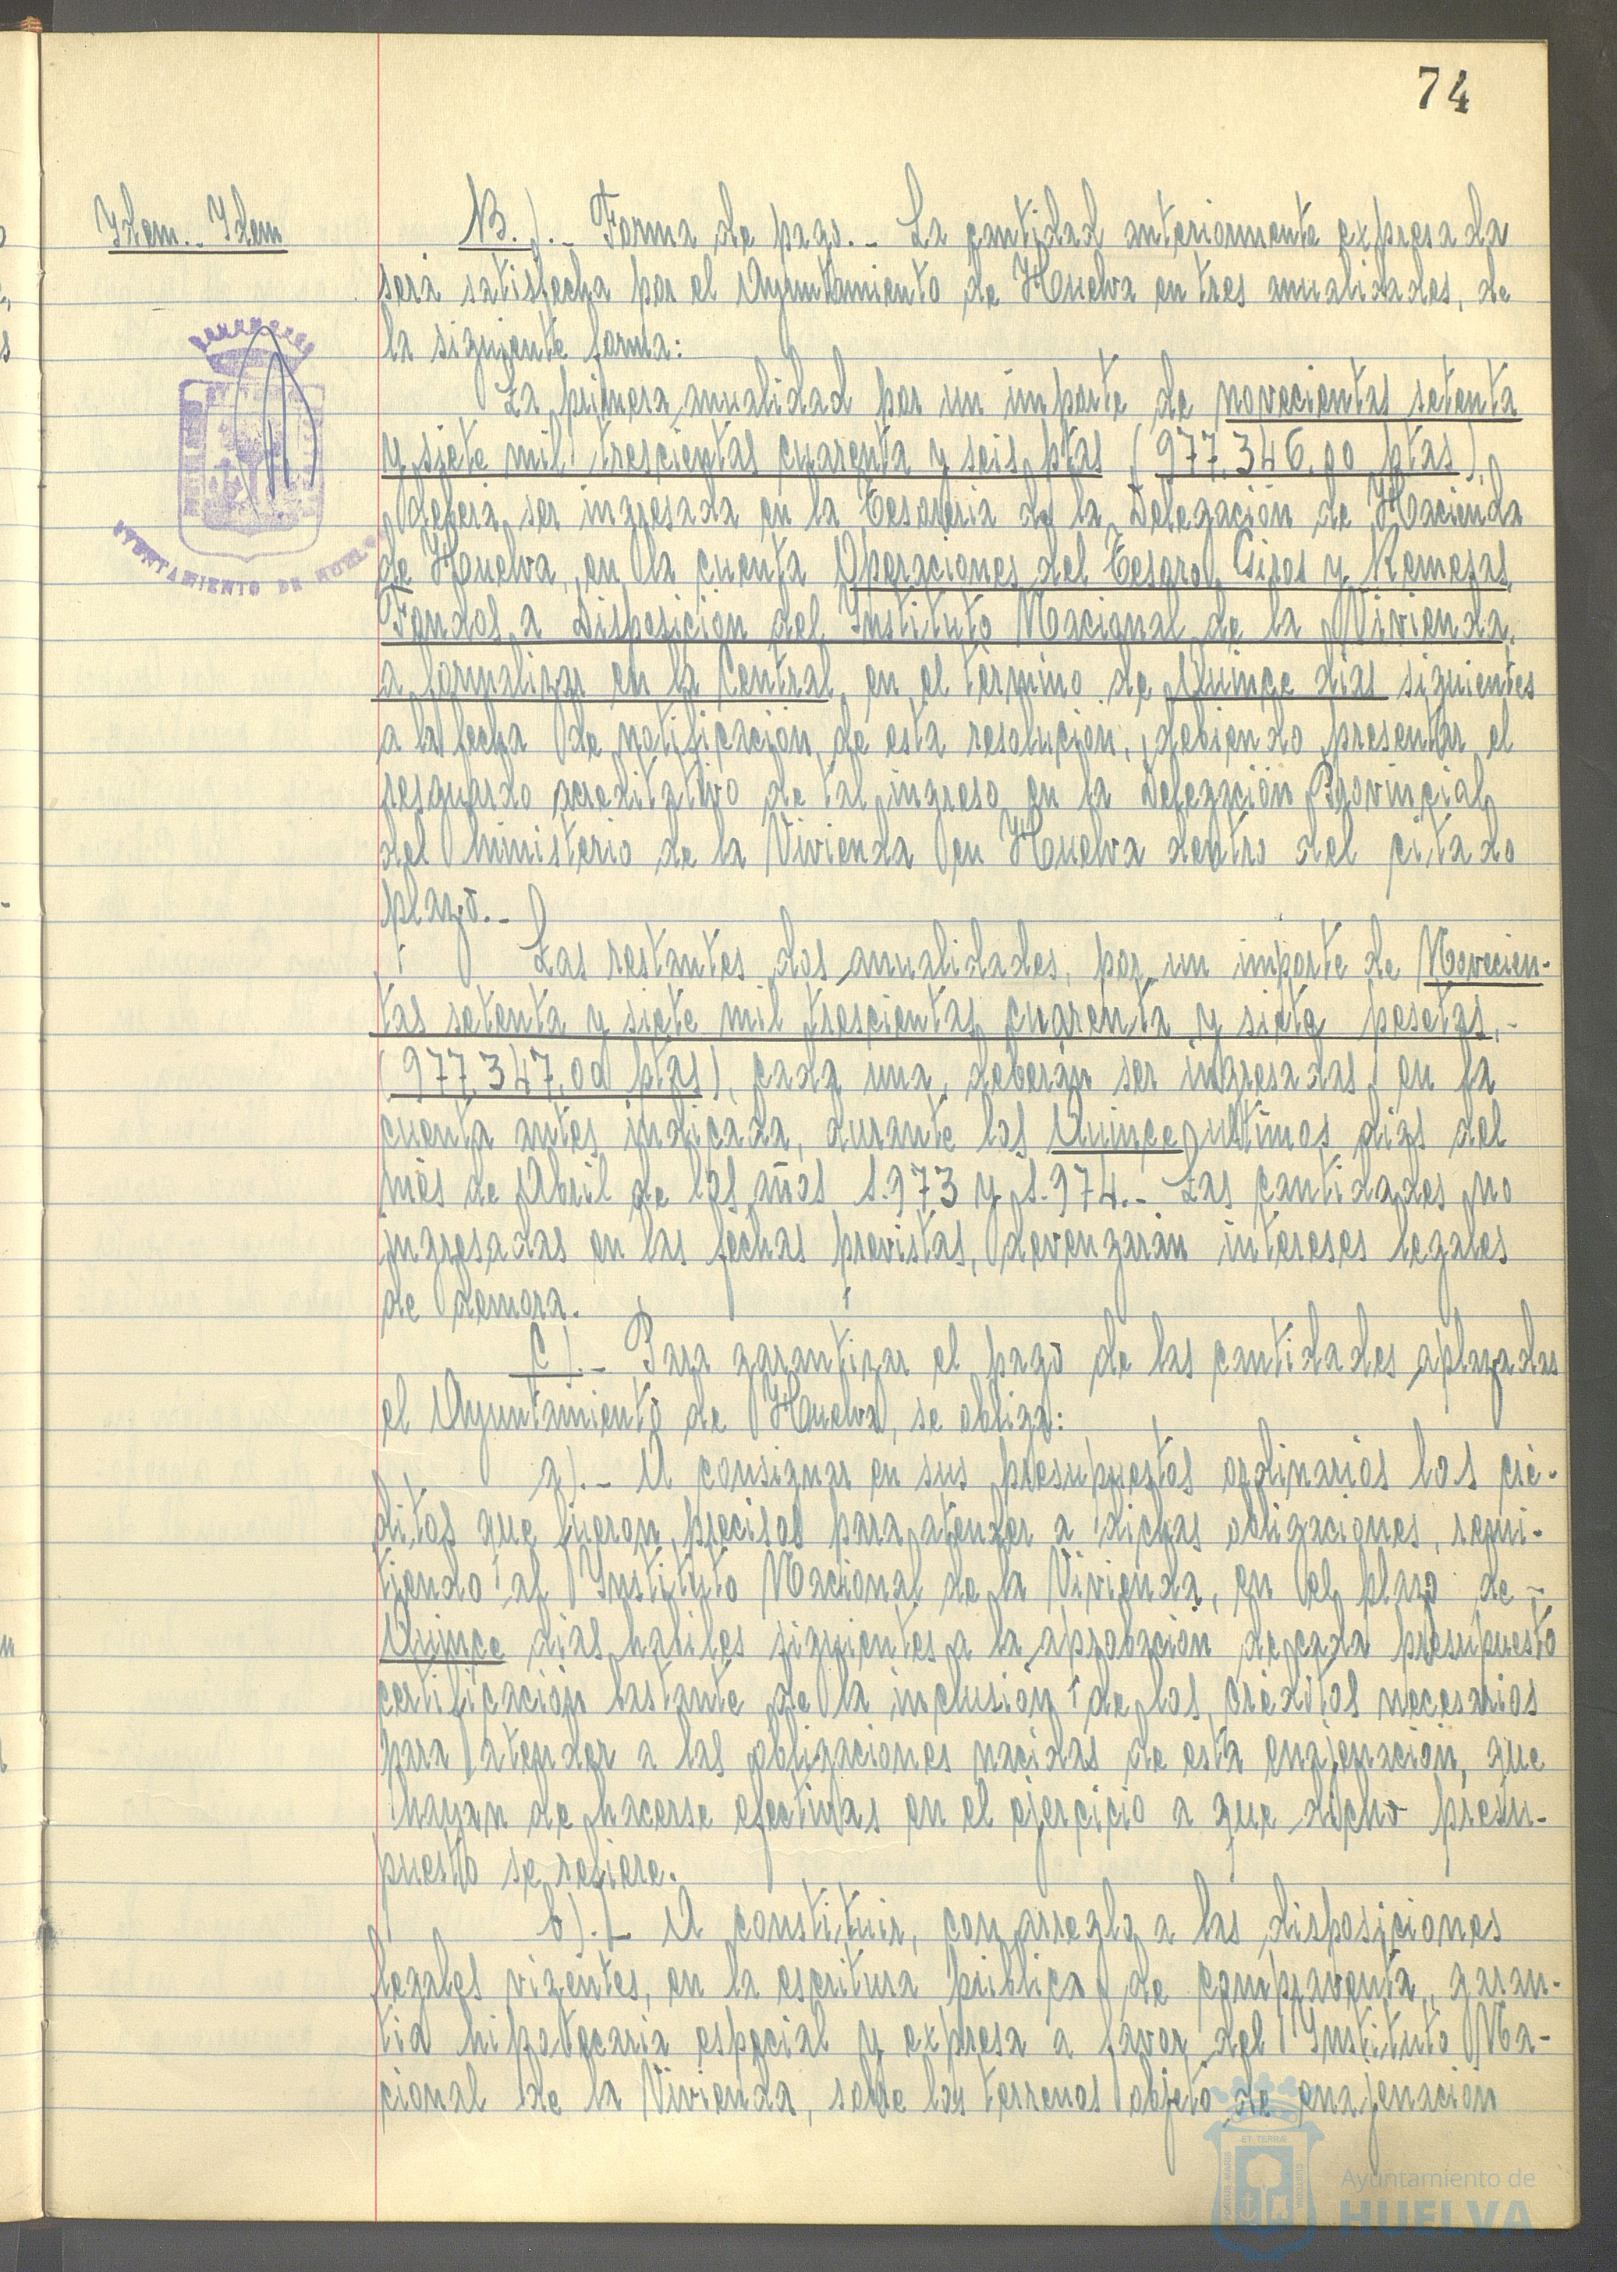 74
Idem.- Idem
B.).- Forma de pago.- La cantidad anteriormente expresada
será satisfecha por el Ayuntamiento de Huelva en tres anualidades, de
la siguiente forma:
La primera anualidad por un importe de novecientas setenta
y siete mil trescientas cuarenta y seis ptas (977.346,00 ptas),
deberá ser ingresada en la Tesorería de la Delegación de Hacienda
de Huelva, en la cuenta Operaciones del Tesoro, Giros y Remesas,
Fondos a Disposición del Instituto Nacional de la Vivienda,
a formalizar en la Central, en el término de Quince días siguientes
a la fecha de notificación de esta resolución, debiendo presentar el
resguardo acreditativo de tal ingreso en la Delegación Provincial
del Ministerio de la Vivienda en Huelva dentro del citado
plazo.-
Las restantes dos anualidades, por un importe de Novecien-
tas setenta y siete mil trescientas cuarenta y siete pesetas,-
(977.347,00 ptas), cada una, deberán ser ingresadas en la
cuenta antes indicada, durante los Quince últimos días del
mes de Abril de los años 1.973 y 1.974.- Las cantidades no
ingresadas en las fechas previstas, devengarán intereses legales
de demora.
C).- Para garantizar el pago de las cantidades aplazadas
el Ayuntamiento de Huelva, se obliga:
a).- A consignar en sus presupuestos ordinarios los cré-
ditos que fueron precisos para atender a dichas obligaciones, remi-
tiendo al Instituto Nacional de la Vivienda, en el plazo de -
Quince días hábiles siguientes a la aprobación de cada presupuesto
certificación bastante de la inclusión de los créditos necesarios
para atender a las obligaciones nacidas de esta enajenación, que
hayan de hacerse efectivas en el ejercicio a que dicho presu-
puesto se refiere.
b).- A constituir, con arreglo a las disposiciones
legales vigentes, en la escritura pública de compraventa, garan-
tía hipotecaria especial y expresa a favor del Instituto Na-
cional de la Vivienda, sobre los terrenos objeto de enajenación
AYUNTAMIENTO DE HUELVA
Ayuntamiento de
HUELVA